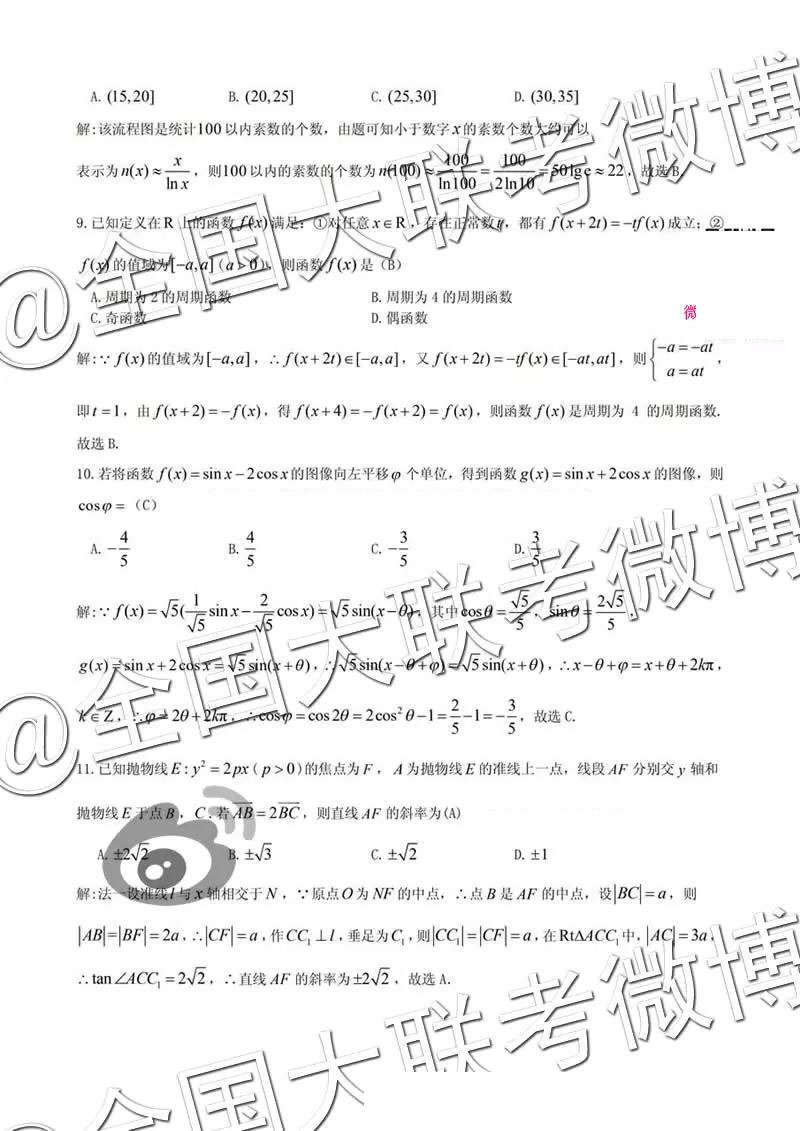 A. (15,20] B. (20,25] C. (25,30] D. (30,35]
解:该流程图是统计100以内素数的个数, 由题可知小于数字x的素数个数大约可以
表示为n(x)≈x/ln x, 则100以内的素数的个数为n(100)≈100/ln100=100/2ln10=50lg e≈22, 故选B.
9.已知定义在R上的函数f(x)满足: ①对任意x∈R, 存在正常数t, 都有f(x+2t)=-tf(x)成立; ②
f(x)的值域为[-a,a](a>0), 则函数f(x)是 (B)
A.周期为2的周期函数 B.周期为4的周期函数
C.奇函数 D.偶函数
微
解:∵f(x)的值域为[-a,a], ∴f(x+2t)∈[-a,a], 又f(x+2t)=-tf(x)∈[-at,at], 则{-a=-at, a=at,
即t=1, 由f(x+2)=-f(x), 得f(x+4)=-f(x+2)=f(x), 则函数f(x)是周期为 4 的周期函数.
故选B.
10.若将函数f(x)=sin x-2cos x的图像向左平移φ个单位, 得到函数g(x)=sin x+2cos x的图像, 则
cosφ= (C)
A. -4/5 B. 4/5 C. -3/5 D. 3/5
解:∵f(x)=√5(1/√5 sin x-2/√5 cos x)=√5sin(x-θ), 其中cosθ=√5/5, sinθ=2√5/5,
g(x)=sin x+2cos x=√5sin(x+θ), ∴√5sin(x-θ+φ)=√5sin(x+θ), ∴x-θ+φ=x+θ+2kπ,
k∈Z, ∴φ=2θ+2kπ, ∴cosφ=cos2θ=2cos²θ-1=2/5-1=-3/5, 故选C.
11.已知抛物线E:y²=2px(p>0)的焦点为F, A为抛物线E的准线上一点, 线段AF分别交y轴和
抛物线E于点B, C.若AB=2BC, 则直线AF的斜率为(A)
A. ±2√2 B. ±√3 C. ±√2 D. ±1
解:法一设准线l与x轴相交于N, ∵原点O为NF的中点, ∴点B是AF的中点, 设|BC|=a, 则
|AB|=|BF|=2a, ∴|CF|=a, 作CC₁⊥l, 垂足为C₁, 则|CC₁|=|CF|=a, 在RtΔACC₁中, |AC|=3a,
∴tan∠ACC₁=2√2, ∴直线AF的斜率为±2√2, 故选A.
@全国大联考微博
@全国大联考微博
@全国大联考微博